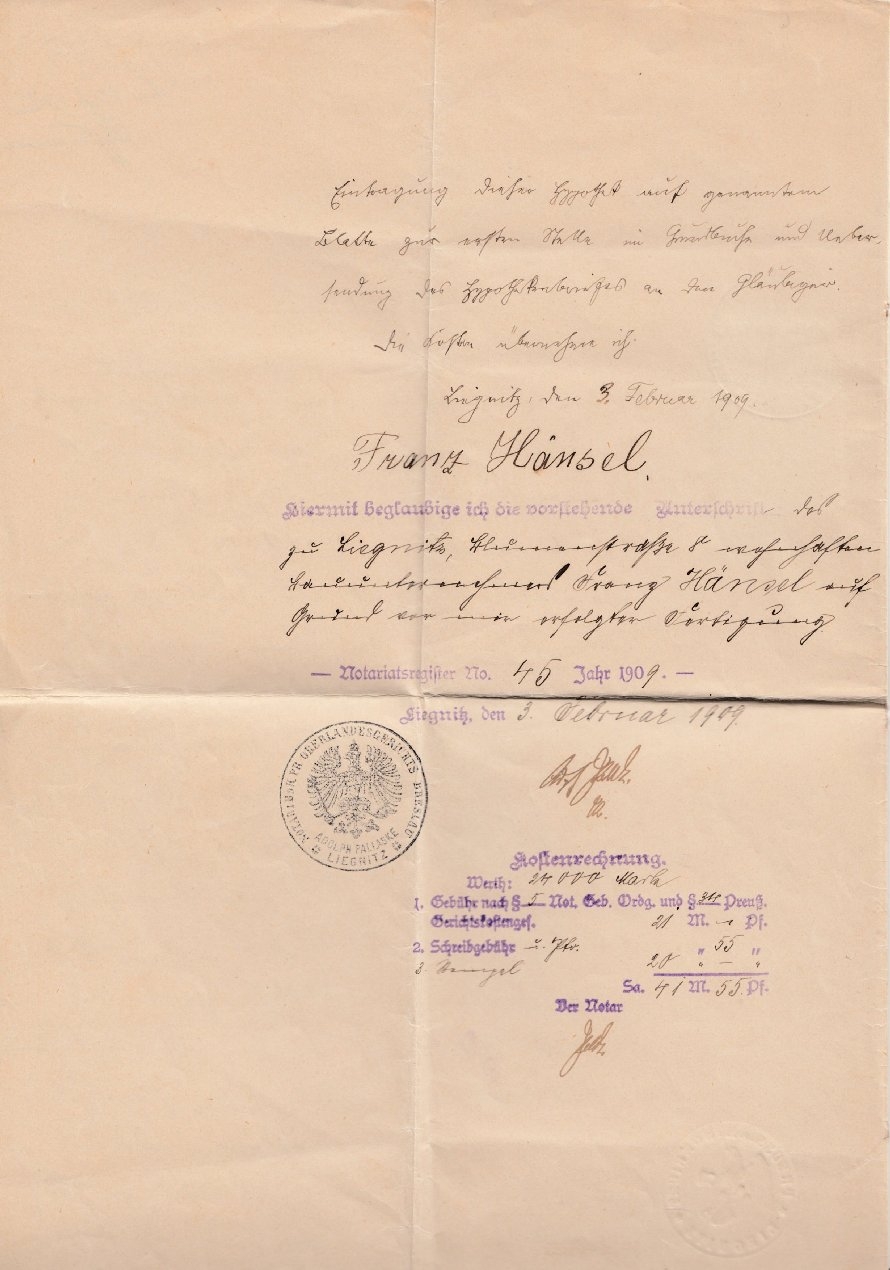 Eintragung dieser Hypothek auf genanntem
Blatte zur ersten Stelle im Grundbuche und Ueber-
sendung des Hypothekenbriefes an den Gläubiger.
Die Kosten übernehme ich.
Liegnitz, den 3. Februar 1909.
Franz Hänsel.
Hiermit beglaubige ich die vorstehende Unterschrift des
zu Liegnitz, Blumenstraße 8 wohnhaften
Bauunternehmers Franz Hänsel auf
Grund vor mir erfolgter Fertigung
— Notariatsregister No. 45 Jahr 1909. —
Liegnitz, den 3. Februar 1909.
OBERLANDESGERICHTS BRESLAU
ADOLPH PALLASKE
LIEGNITZ
Kostenrechnung.
Werth: 24000 Mark
1. Gebühr nach § 5 Not. Geb. Ordg. und § Preuß.
Gerichtskostenges. 21 M. — Pf.
2. Schreibgebühr u. " 55 "
3. Stempel 20 " — "
Sa. 41 M. 55 Pf.
Der Notar